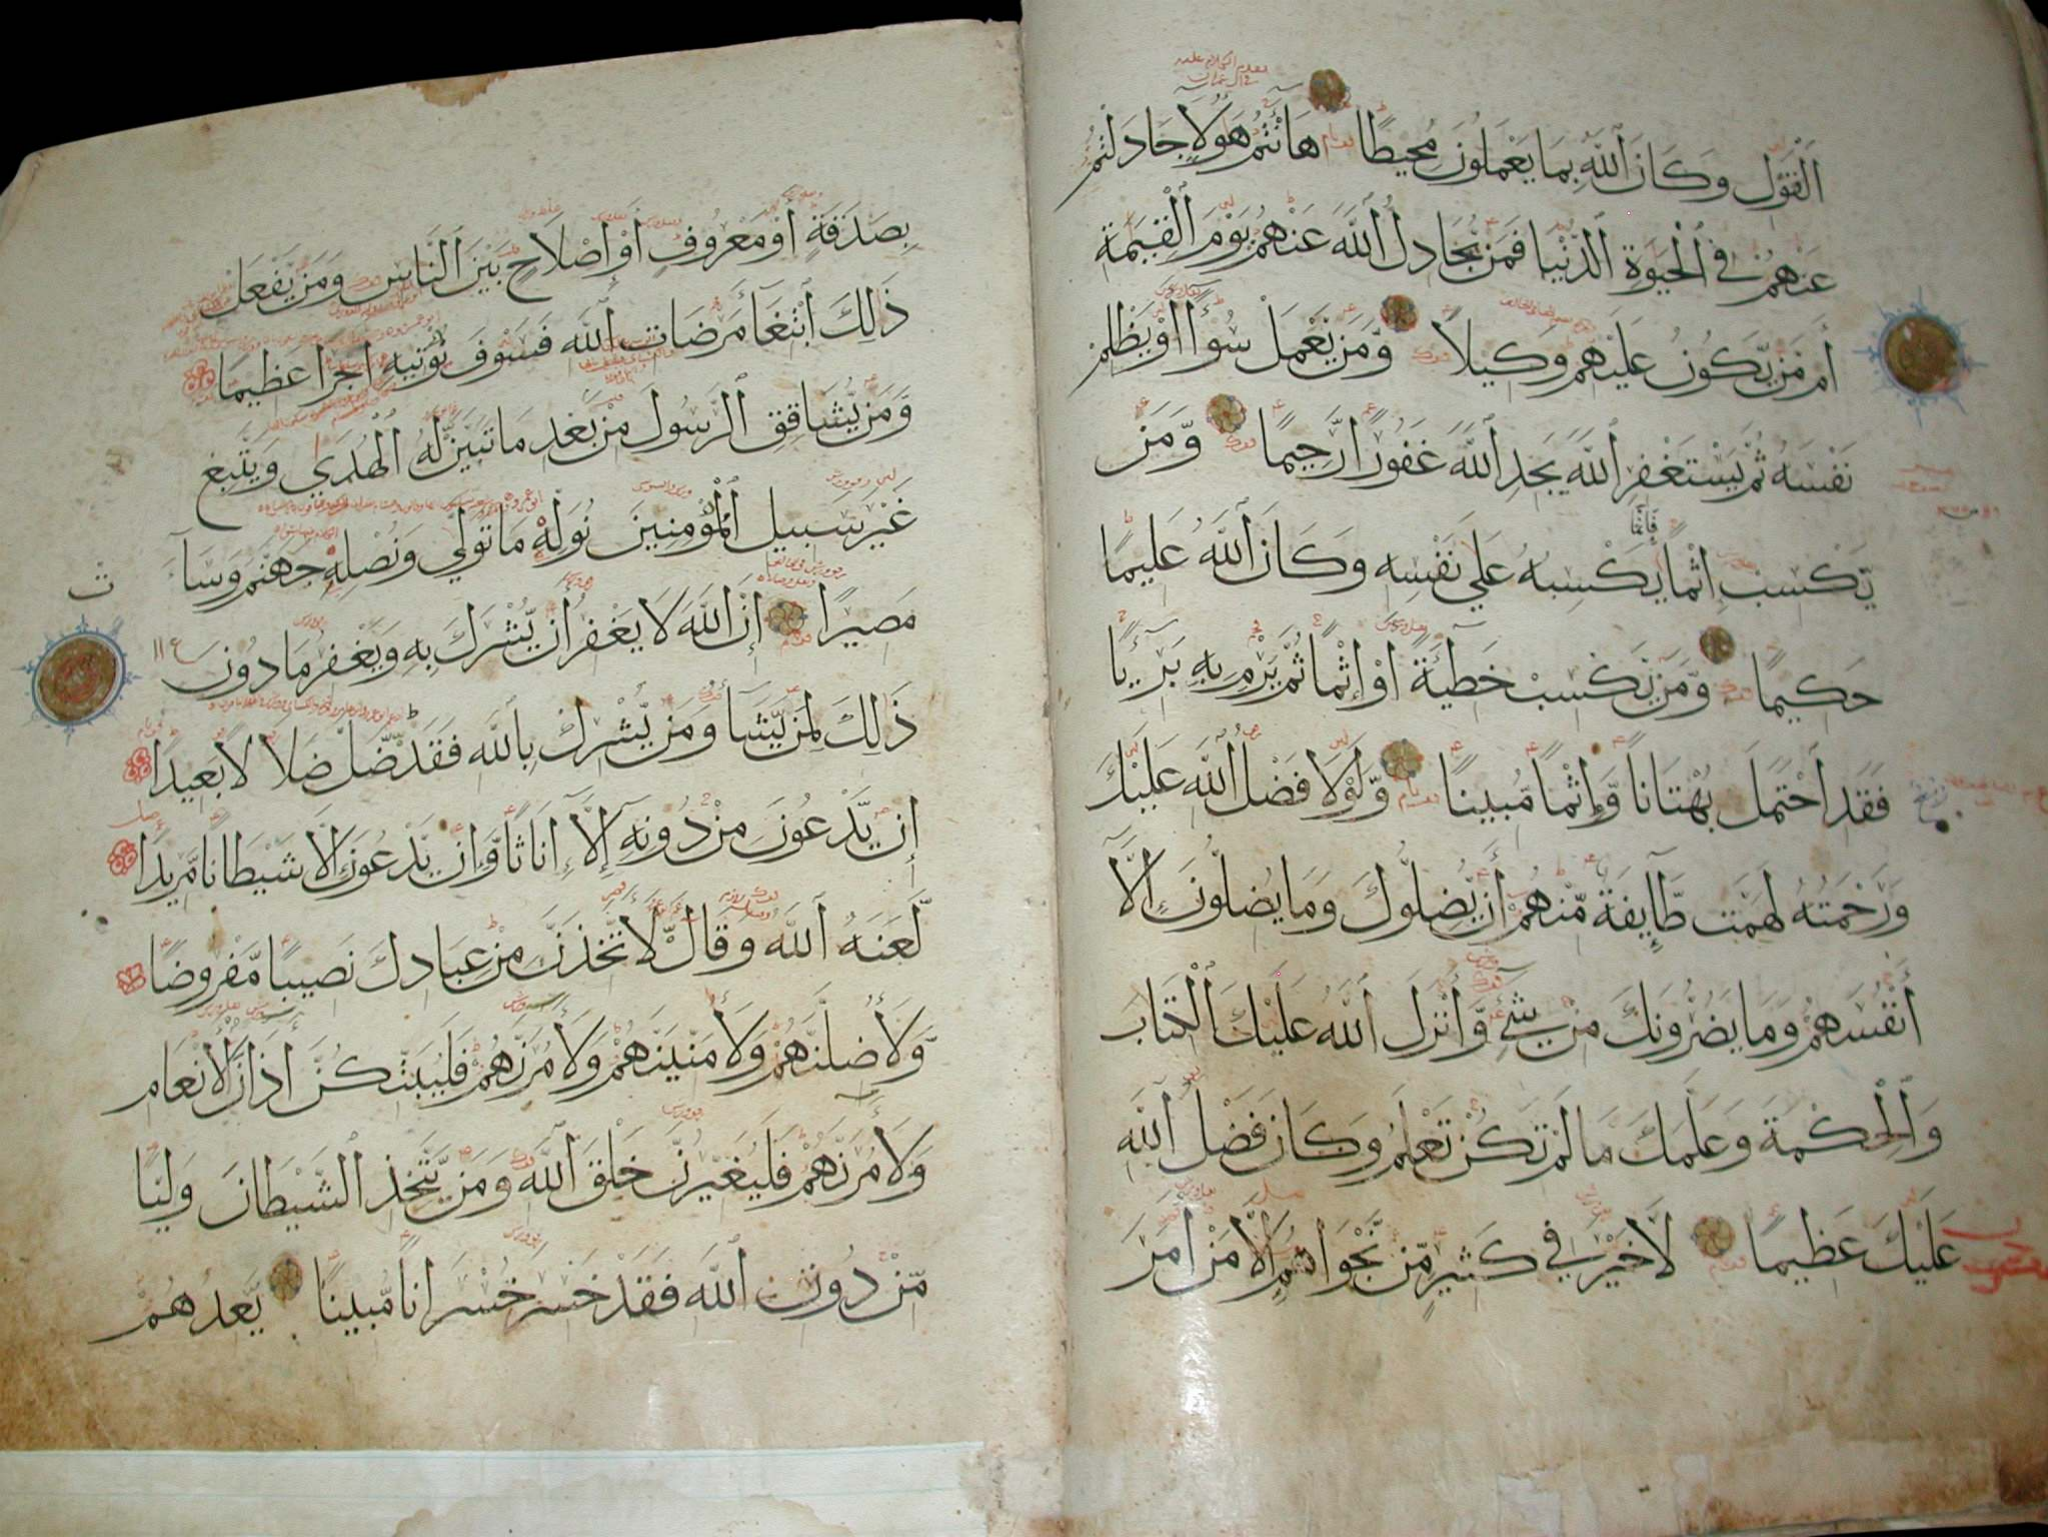 الْقَوْلِ وَكَانَ اللَّهُ بِمَا يَعْمَلُونَ مُحِيطًا هَا أَنْتُمْ هَؤُلَا جَادَلْتُمْ
عَنْهُمْ فِي الْحَيَوةِ الدُّنْيَا فَمَنْ يُجَادِلُ اللَّهَ عَنْهُمْ يَوْمَ الْقِيَمَةِ
أَم مَّن يَّكُونُ عَلَيْهِمْ وَكِيلًا وَّمَن يَّعْمَلْ سُوءًا أَوْ يَظْلِمْ
نَفْسَهُ ثُمَّ يَسْتَغْفِرِ اللَّهَ يَجِدِ اللَّهَ غَفُورًا رَّحِيمًا وَّمَن
يَّكْسِبْ إِثْمًا فَإِنَّمَا يَكْسِبُهُ عَلَى نَفْسِهِ وَكَانَ اللَّهُ عَلِيمًا
حَكِيمًا وَّمَن يَّكْسِبْ خَطِيئَةً أَوْ إِثْمًا ثُمَّ يَرْمِ بِهِ بَرِيئًا
فَقَدِ احْتَمَلَ بُهْتَانًا وَّإِثْمًا مُّبِينًا وَّلَوْلَا فَضْلُ اللَّهِ عَلَيْكَ
وَرَحْمَتُهُ لَهَمَّت طَّآئِفَةٌ مِّنْهُمْ أَن يُّضِلُّوكَ وَمَا يُضِلُّونَ إِلَّا
أَنْفُسَهُمْ وَمَا يَضُرُّونَكَ مِنْ شَيْءٍ وَّأَنْزَلَ اللَّهُ عَلَيْكَ الْكِتَابَ
وَالْحِكْمَةَ وَعَلَّمَكَ مَا لَمْ تَكُنْ تَعْلَمُ وَكَانَ فَضْلُ اللَّهِ
عَلَيْكَ عَظِيمًا لَّا خَيْرَ فِي كَثِيرٍ مِّن نَّجْوَاهُمْ إِلَّا مَنْ أَمَرَ
بِصَدَقَةٍ أَوْ مَعْرُوفٍ أَوْ إِصْلَاحٍ بَيْنَ النَّاسِ وَمَن يَّفْعَلْ
ذَلِكَ ابْتِغَآ مَرْضَاتِ اللَّهِ فَسَوْفَ نُؤْتِيهِ أَجْرًا عَظِيمًا
وَّمَن يُّشَاقِقِ الرَّسُولَ مِنْ بَعْدِ مَا تَبَيَّنَ لَهُ الْهُدَى وَيَتَّبِعْ
غَيْرَ سَبِيلِ الْمُؤْمِنِينَ نُوَلِّهِ مَا تَوَلَّى وَنُصْلِهِ جَهَنَّمَ وَسَآ
مَصِيرًا إِنَّ اللَّهَ لَا يَغْفِرُ أَن يُّشْرَكَ بِهِ وَيَغْفِرُ مَا دُونَ
ذَلِكَ لِمَن يَّشَآ وَمَن يُّشْرِكْ بِاللَّهِ فَقَد ضَّلَّ ضَلَالًا بَعِيدًا
إِن يَّدْعُونَ مِنْ دُونِهِ إِلَّا إِنَاثًا وَّإِن يَّدْعُونَ إِلَّا شَيْطَانًا مَّرِيدًا
لَّعَنَهُ اللَّهُ وَقَالَ لَأَتَّخِذَنَّ مِنْ عِبَادِكَ نَصِيبًا مَّفْرُوضًا
وَّلَأُضِلَّنَّهُمْ وَلَأُمَنِّيَنَّهُمْ وَلَآمُرَنَّهُمْ فَلَيُبَتِّكُنَّ آذَانَ الْأَنْعَامِ
وَلَآمُرَنَّهُمْ فَلَيُغَيِّرُنَّ خَلْقَ اللَّهِ وَمَن يَّتَّخِذِ الشَّيْطَانَ وَلِيًّا
مِّنْ دُونِ اللَّهِ فَقَدْ خَسِرَ خُسْرَانًا مُّبِينًا يَّعِدُهُمْ